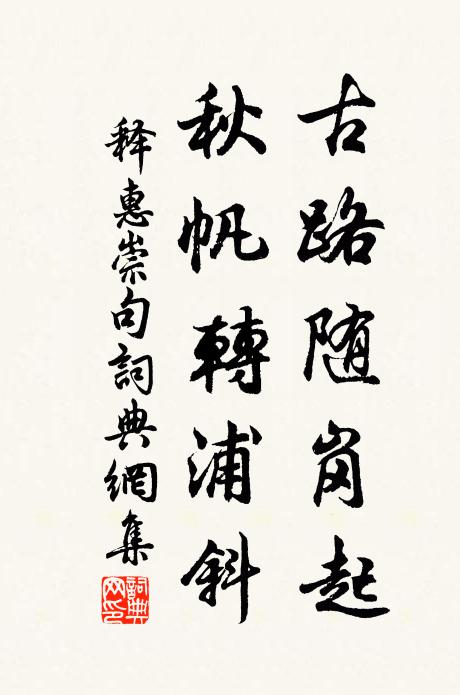 古路随岗起
秋帆轉浦斜
释惠崇句詞典網集
詞典网印